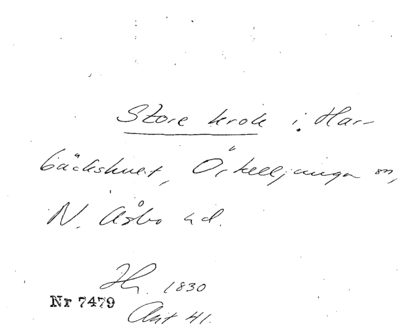 Store krok i Har-
bäckshult, Örkelljunga sn,
N. Åsbo hd.
Hr. 1830
Nr 7479
Akt 41.